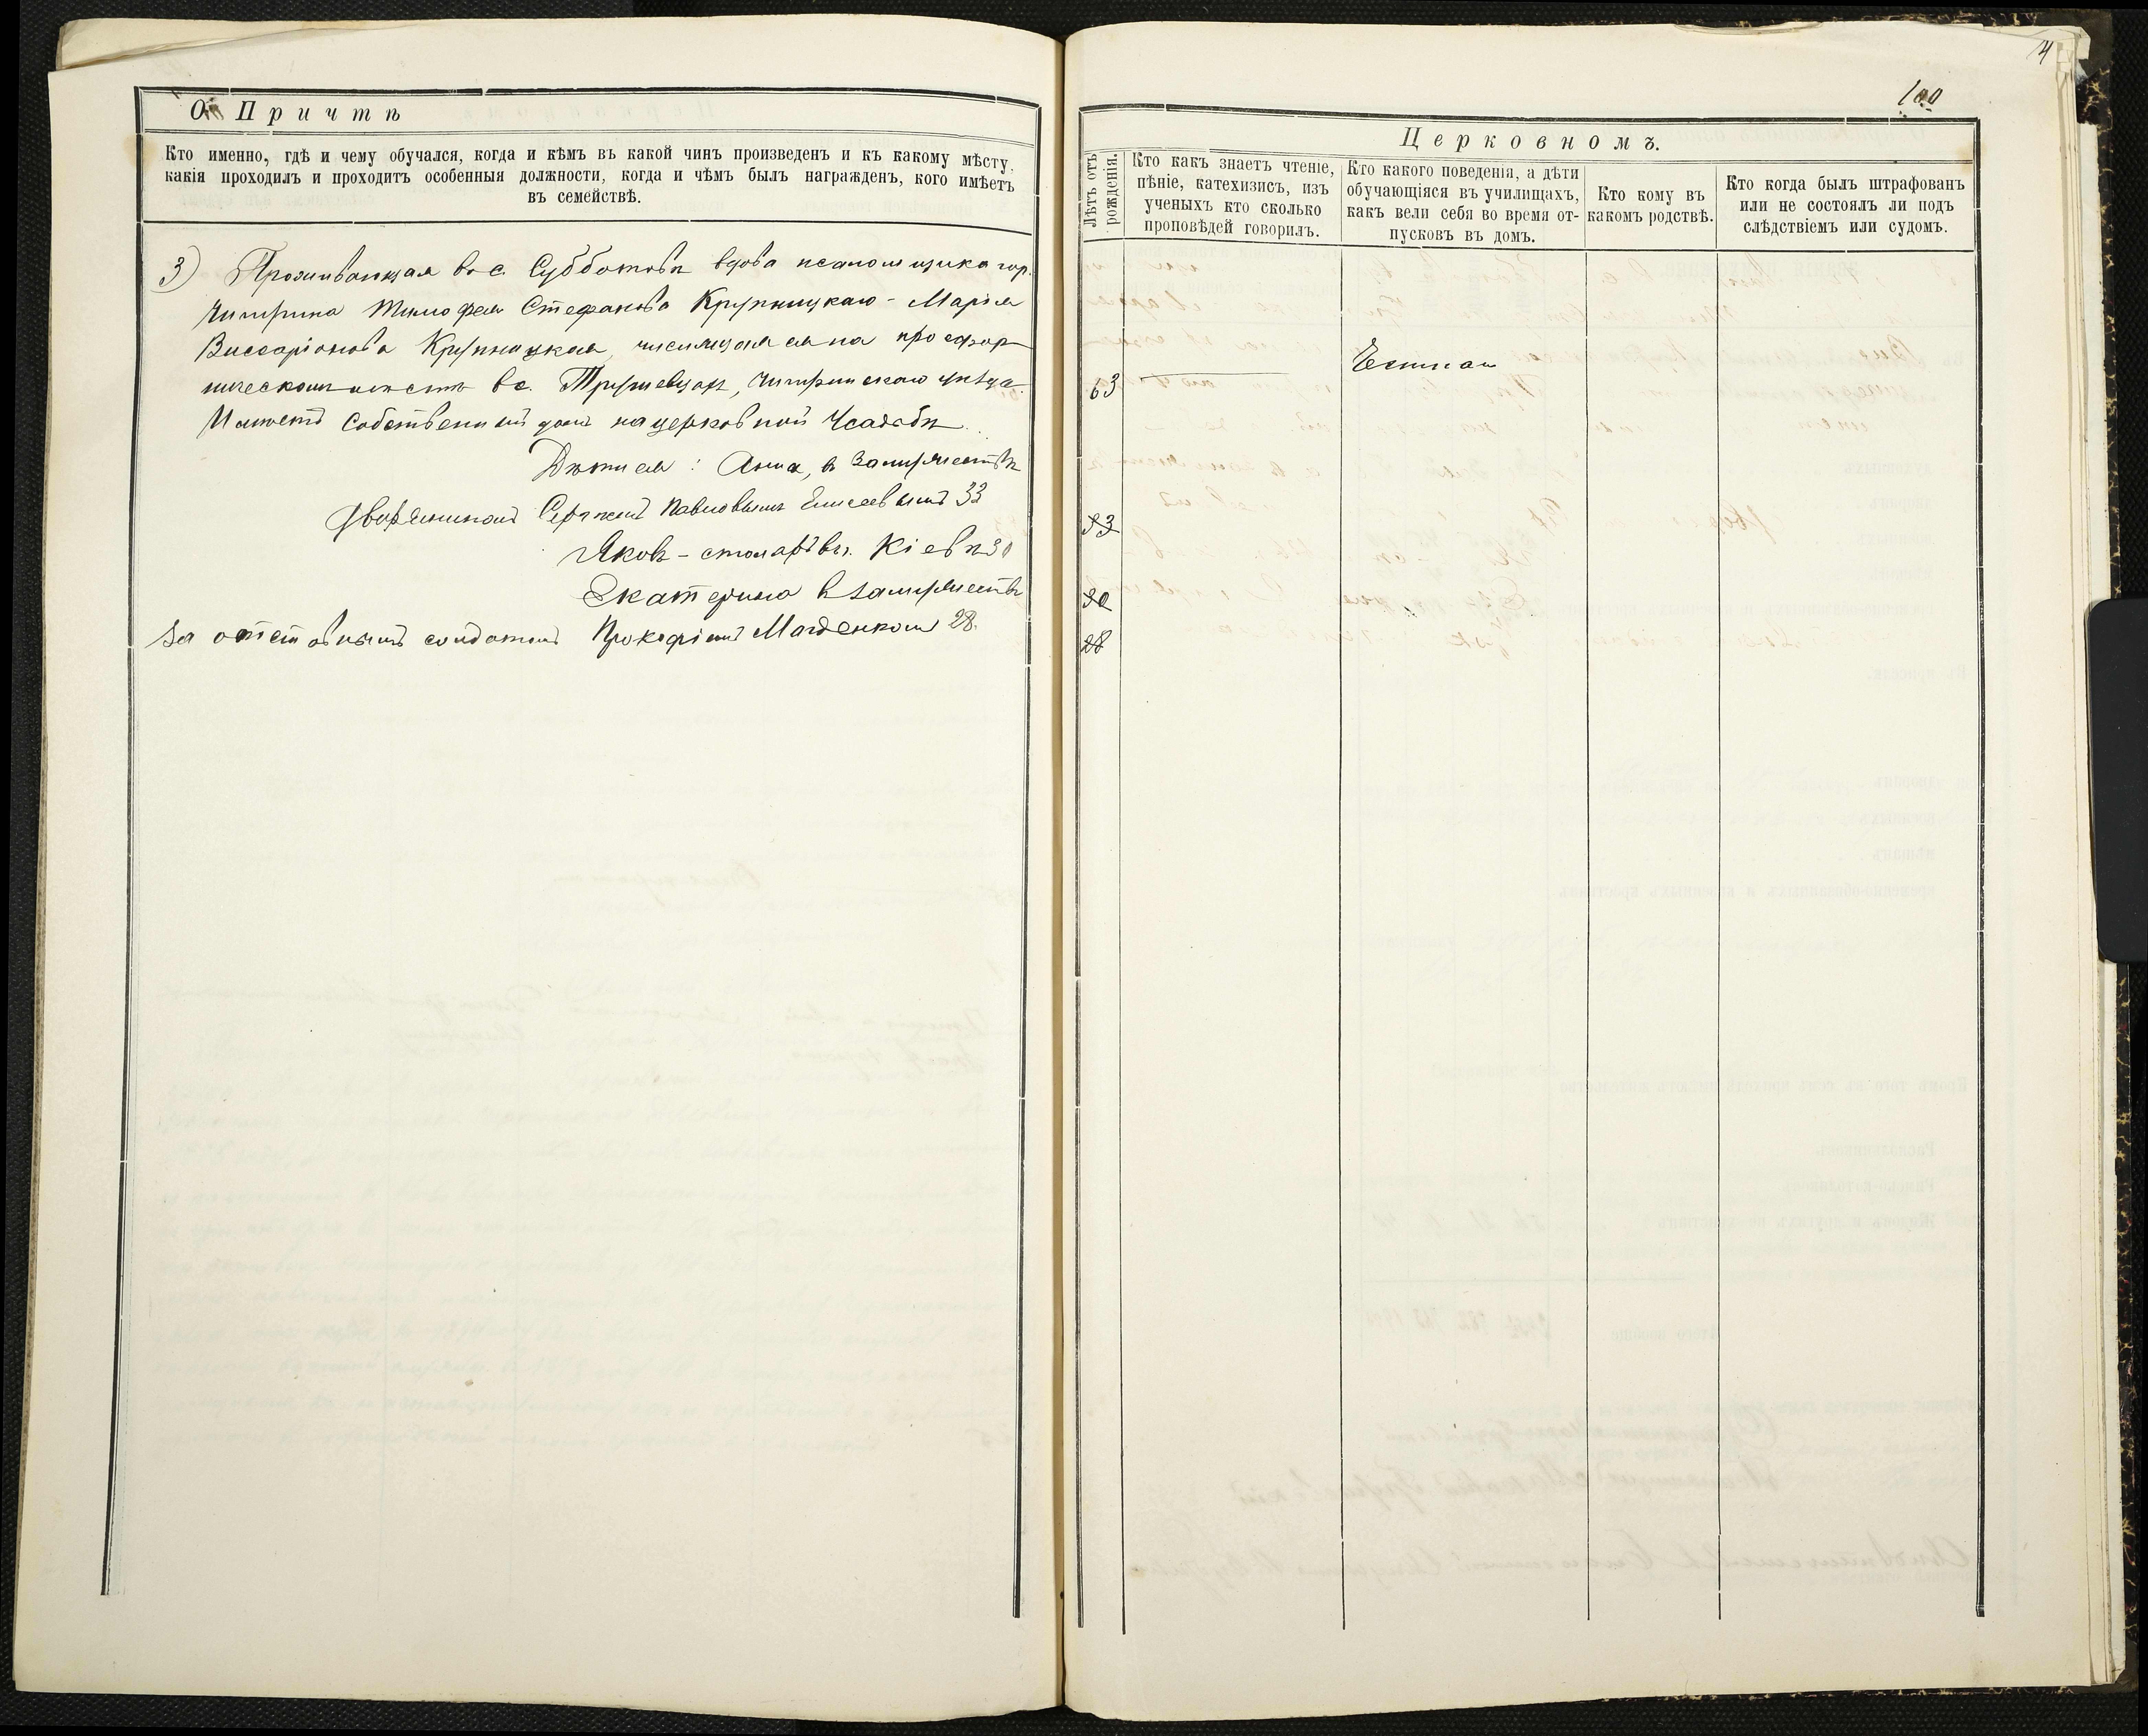 О Причтѣ
Кто именно, гдѣ и чему обучался, когда и кѣмъ въ какой чинъ произведенъ и къ какому мѣсту,
какія проходилъ и проходитъ особенныя должности, когда и чѣмъ былъ награжденъ, кого имѣетъ
въ семействѣ.
3) Проживающая въ с. Субботовѣ вдова псаломщика гор.
Чигирина Тимофея Стефанова Крупницкаго - Марія
Виссаріонова Крупницкая, числящаяся на просфор
ническомъ мѣстѣ в с. Трушевцахъ, Чигиринскаго уѣзда.
Имѣетъ собственный домъ на церковной усадьбѣ.
Дѣти ея: Анна, в замужествѣ
дворяниномъ Сергѣемъ Павловымъ Елисеевымъ 33
Яковъ - столяръ въ г. Кіевѣ 30
Екатерина в замужествѣ
за отставнымъ солдатомъ Прокофіемъ Магденкомъ 28.
4
100
Церковномъ.
Лѣтъ отъ рожденія.
Кто какъ знаетъ чтеніе,
пѣніе, катехизисъ, изъ
ученыхъ кто сколько
проповѣдей говорилъ.
Кто какого поведенія, а дѣти
обучающіяся въ училищахъ,
какъ вели себя во время от-
пусковъ въ домъ.
Кто кому въ
какомъ родствѣ.
Кто когда былъ штрафованъ
или не состоялъ ли подъ
слѣдствіемъ или судомъ.
63
33
30
28